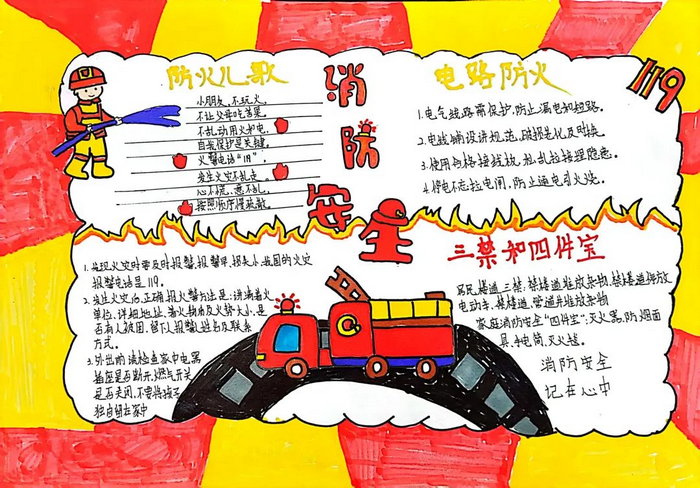 防火儿歌
小朋友,不玩火。
不让父母吃苦果。
不乱动用火和电,
自我保护是关键。
火警电话"119"。
发生火灾不乱走。
心不慌,意不乱,
按照顺序慢疏散。
消防安全
电路防火
119
1.电气线路需保护,防止漏电和短路。
2.电线铺设讲规范,破损老化及时换。
3.使用合格接线板,私乱拉接埋隐患。
4.停电不忘拉电闸,防止通电引火烧。
1.发现火灾时要及时报警,报警早,损失小,我国的火灾
报警电话是119。
2.发生火灾后,正确报火警方法是:讲清着火
单位、详细地址、着火物质及火势大小,是
否有人被困,留下报警姓名及联系
方式。
3.外出前,请检查家中电器
插座是否断开,燃气开关
是否关闭,不要将孩子
独自留在家中
三禁和四件宝
居民楼道三禁:禁楼道堆放杂物,禁楼道停放
电动车,禁楼道管道井堆放杂物
家庭消防安全"四件宝":灭火器,防烟面
具,手电筒,灭火毯。
消防安全
记在心中